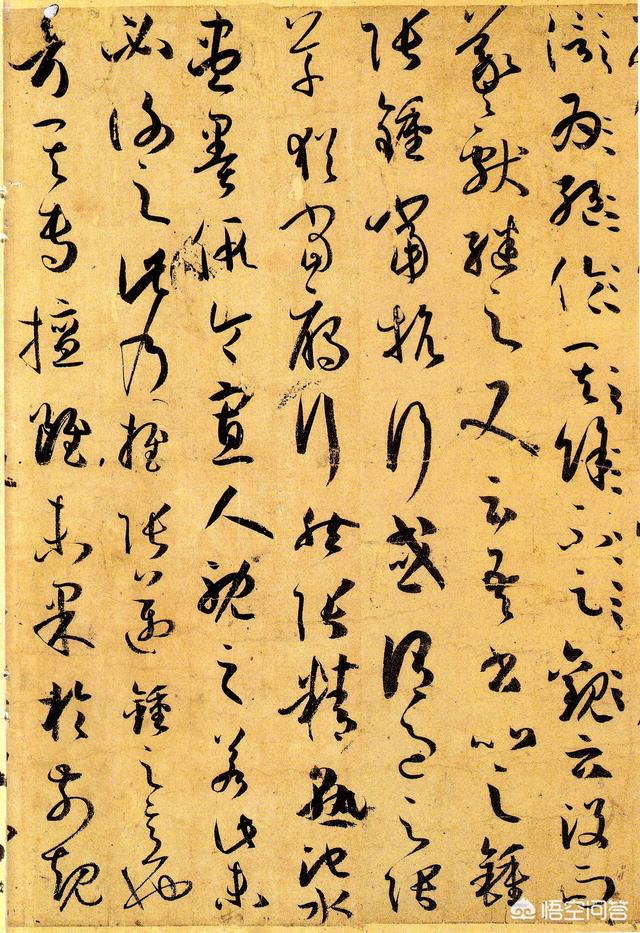 為絕倫其餘不足觀云沒而
羲獻繼之又云吾書比之鍾
張鍾當抗行或謂過之張
草猶當雁行然張精熟池水
盡墨假令寡人耽之若此未
必謝之此乃推張邁鍾之意也
考其專擅雖未果於前規
悟空问答